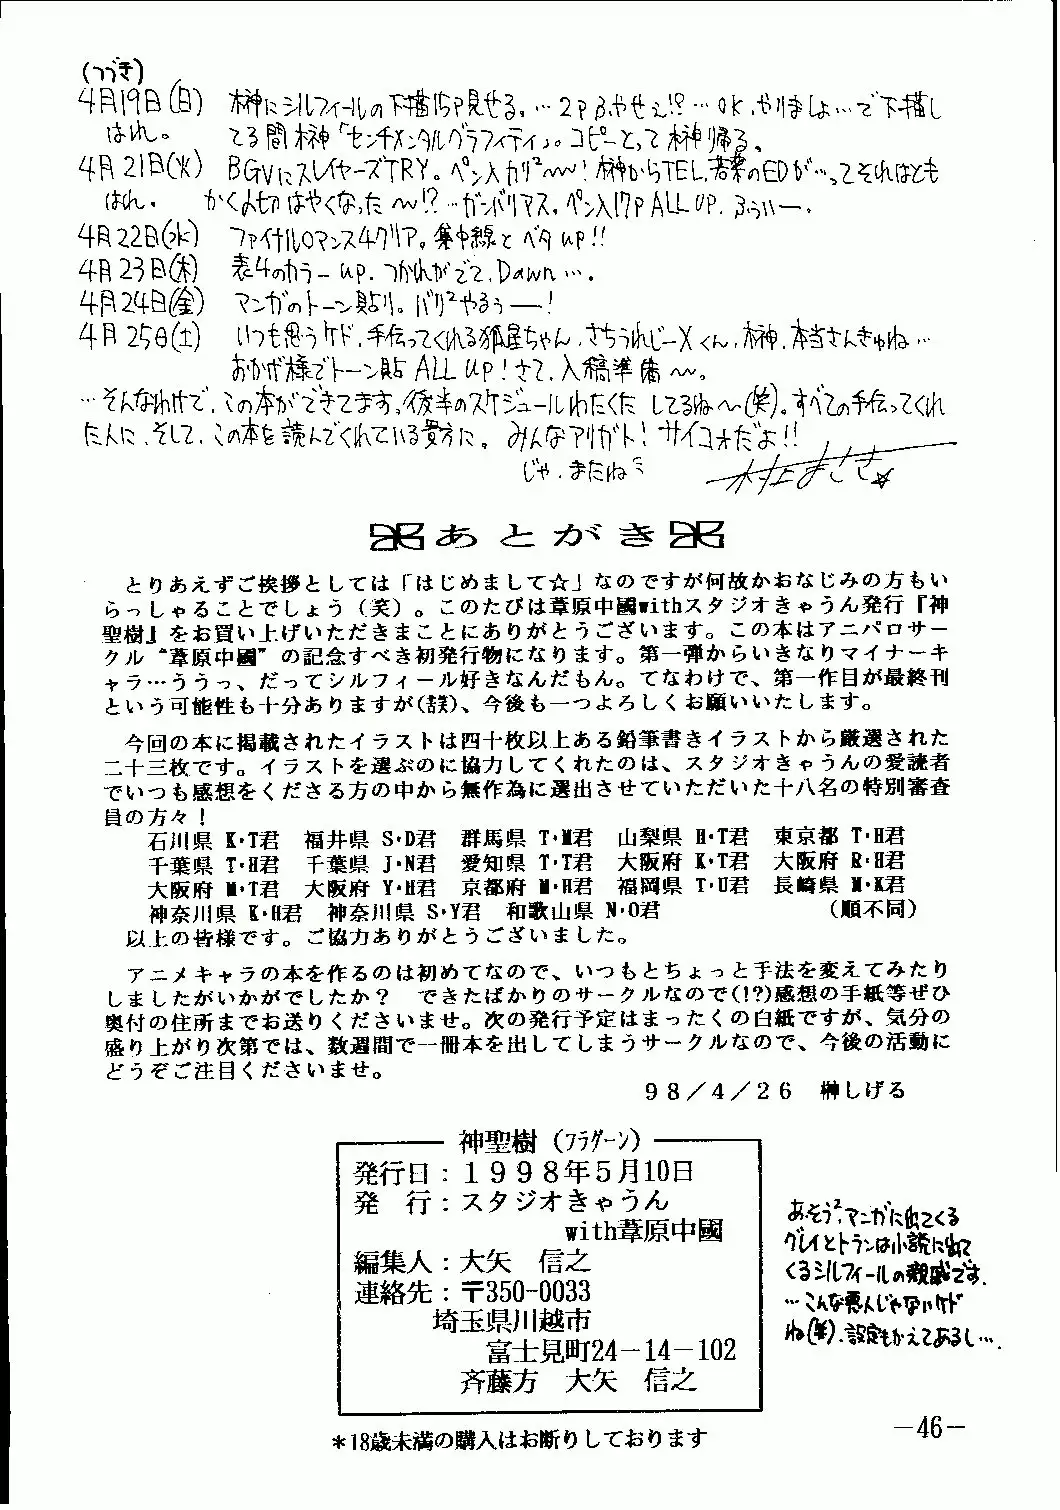 (つづき)
4月19日(日) 榊にシルフィールの下描15P見せる。…2Pふやせぇ!?…OK、やりましょ…で下描し
はれ。 てる間榊「センチメンタルグラフィティ」。コピーとって榊帰る。
4月21日(火) BGVにスレイヤーズTRY。ペン入カリ²〜〜!榊からTEL、若菜のEDが…ってそれはとも
はれ。 かく〆切はやくなった〜!?…ガンバリマス。ペン入17P ALL UP. ふぅぃー.
4月22日(水) ファイナルロマンス4クリア。集中線とベタup!!
4月23日(木) 表4のカラーup. つかれがでて、Dawn….
4月24日(金) マンガのトーン貼り。バリ²やるぅー!
4月25日(土) いつも思うケド、手伝ってくれる狐星ちゃん、さちうれじーXくん、榊、本当さんきゅね…
おかげ様でトーン貼ALL UP!さて、入稿準備〜。
…そんなわけで、この本ができてます。後半のスケジュールわたくたしてるね〜(笑)。すべての手伝ってくれ
た人に、そして、この本を読んでくれている貴方に。みんなアリガト!サイコォだよ!!
じゃ、またねミ
あとがき
とりあえずご挨拶としては「はじめまして☆」なのですが何故かおなじみの方もい
らっしゃることでしょう(笑)。このたびは葦原中國withスタジオきゃうん発行『神
聖樹』をお買い上げいただきまことにありがとうございます。この本はアニパロサー
クル“葦原中國”の記念すべき初発行物になります。第一弾からいきなりマイナーキ
ャラ…ううっ、だってシルフィール好きなんだもん。てなわけで、第一作目が最終刊
という可能性も十分ありますが(莟)、今後も一つよろしくお願いいたします。
今回の本に掲載されたイラストは四十枚以上ある鉛筆書きイラストから厳選された
二十三枚です。イラストを選ぶのに協力してくれたのは、スタジオきゃうんの愛読者
でいつも感想をくださる方の中から無作為に選出させていただいた十八名の特別審査
員の方々!
石川県 K・T君 福井県 S・D君 群馬県 T・M君 山梨県 H・T君 東京都 T・H君
千葉県 T・H君 千葉県 J・N君 愛知県 T・T君 大阪府 K・T君 大阪府 R・H君
大阪府 M・T君 大阪府 Y・H君 京都府 M・H君 福岡県 T・U君 長崎県 M・K君
神奈川県 K・H君 神奈川県 S・Y君 和歌山県 N・O君 (順不同)
以上の皆様です。ご協力ありがとうございました。
アニメキャラの本を作るのは初めてなので、いつもとちょっと手法を変えてみたり
しましたがいかがでしたか? できたばかりのサークルなので(!?)感想の手紙等ぜひ
奥付の住所までお送りくださいませ。次の発行予定はまったくの白紙ですが、気分の
盛り上がり次第では、数週間で一冊本を出してしまうサークルなので、今後の活動に
どうぞご注目くださいませ。
98/4/26 榊しげる
神聖樹(フラグーン)
発行日:1998年5月10日
発 行:スタジオきゃうん
with葦原中國
編集人:大矢 信之
連絡先:〒350-0033
埼玉県川越市
富士見町24-14-102
斉藤方 大矢 信之
あ、そう²、マンガに出てくる
グレイとトランは小説に出て
くるシルフィールの親戚です.
…こんな悪人じゃないケド
ね(笑). 設定もかえてあるし….
*18歳未満の購入はお断りしております
-46-